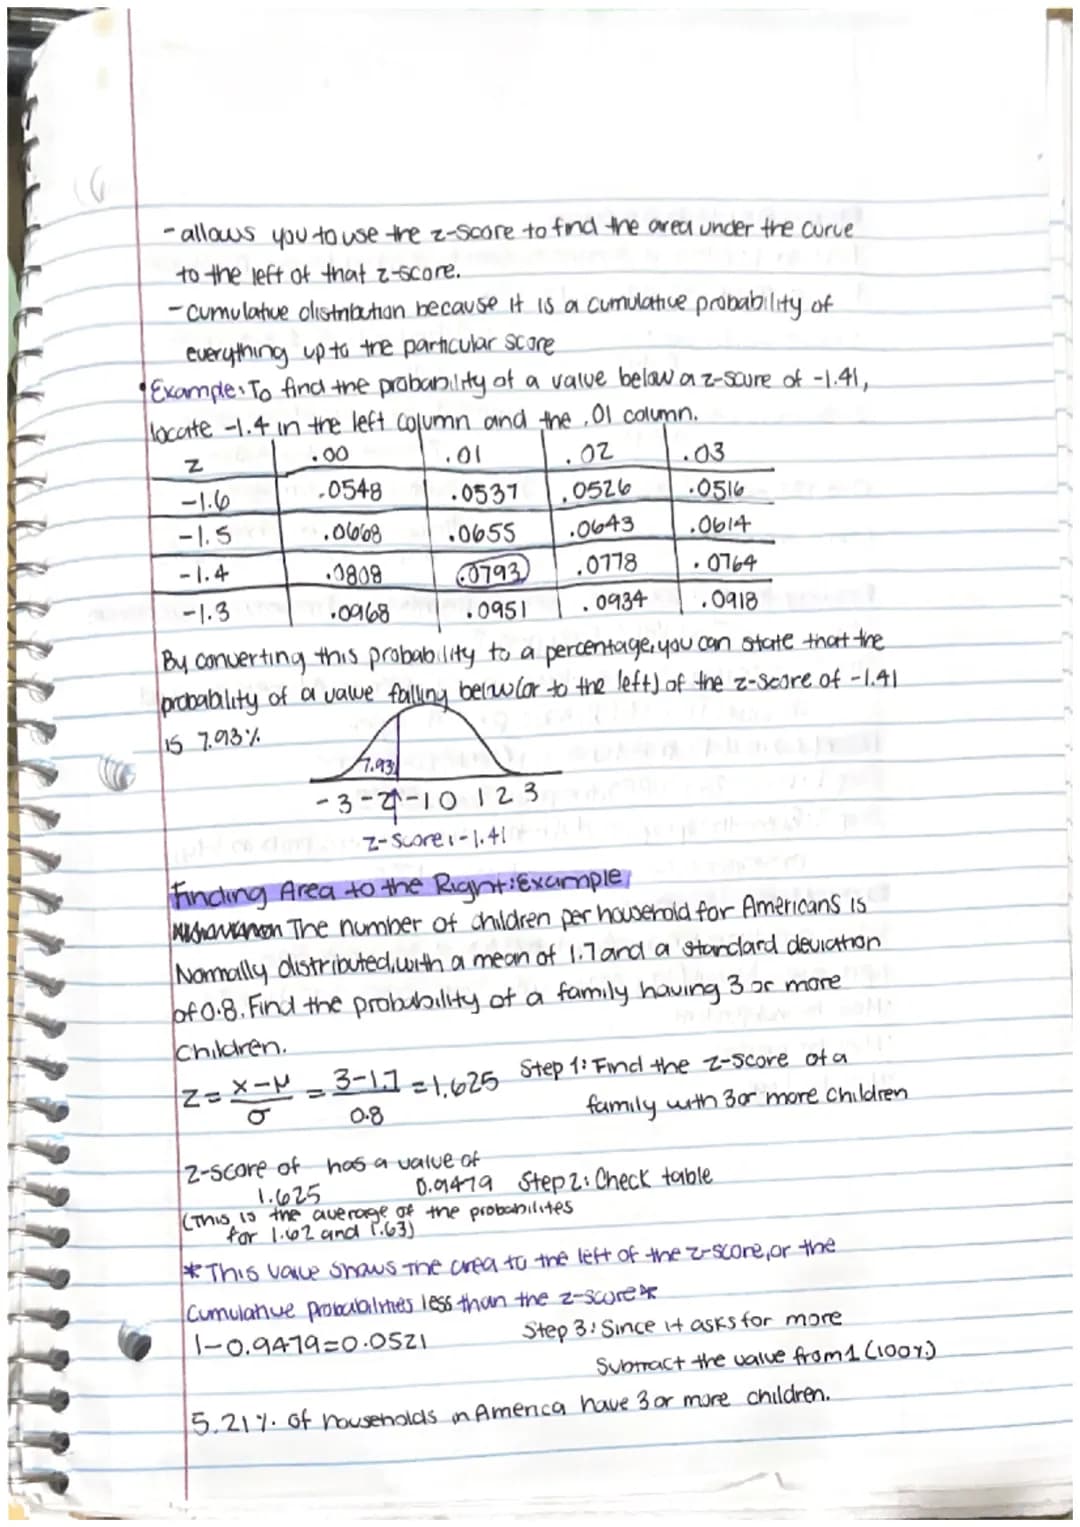 - allows you to use the z-score to find the area under the curve
to the left of that z-score.
- cumulative distribution because it is a cumulative probability of
everything up to the particular score
• Example: To find the probability of a value below a z-score of -1.41,
locate -1.4 in the left column and the .01 column.
z .00 .01 .02 .03
-1.6 .0548 .0537 .0526 .0516
-1.5 .0668 .0655 .0643 .0614
-1.4 .0808 .0793 .0778 .0764
-1.3 .0968 .0951 .0934 .0918
By converting this probability to a percentage, you can state that the
probability of a value falling below (or to the left) of the z-score of -1.41
is 7.93%
7.93
-3 -2 -1 0 1 2 3
z-score: -1.41
Finding Area to the Right: Example
The number of children per household for Americans is
Normally distributed, with a mean of 1.7 and a standard deviation
of 0.8. Find the probability of a family having 3 or more
Children.
Z = x-μ/σ = 3-1.7/0.8 = 1.625 Step 1: Find the z-score of a
family with 3 or more children
z-score of has a value of
1.625 0.9479 Step 2: Check table
(This is the average of the probabilites
for 1.62 and 1.63)
* This value shows the area to the left of the z-score, or the
Cumulative probabilities less than the z-score *
1-0.9479=0.0521 Step 3: Since it asks for more
Subtract the value from 1 (100%)
5.21% of households in America have 3 or more children.